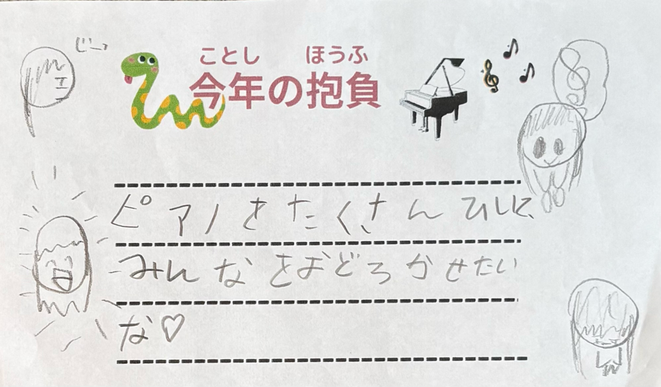 じーっ
ことし ほうふ
今年の抱負
ピアノをたくさんひいて、
みんなをおどろかせたい
な♡